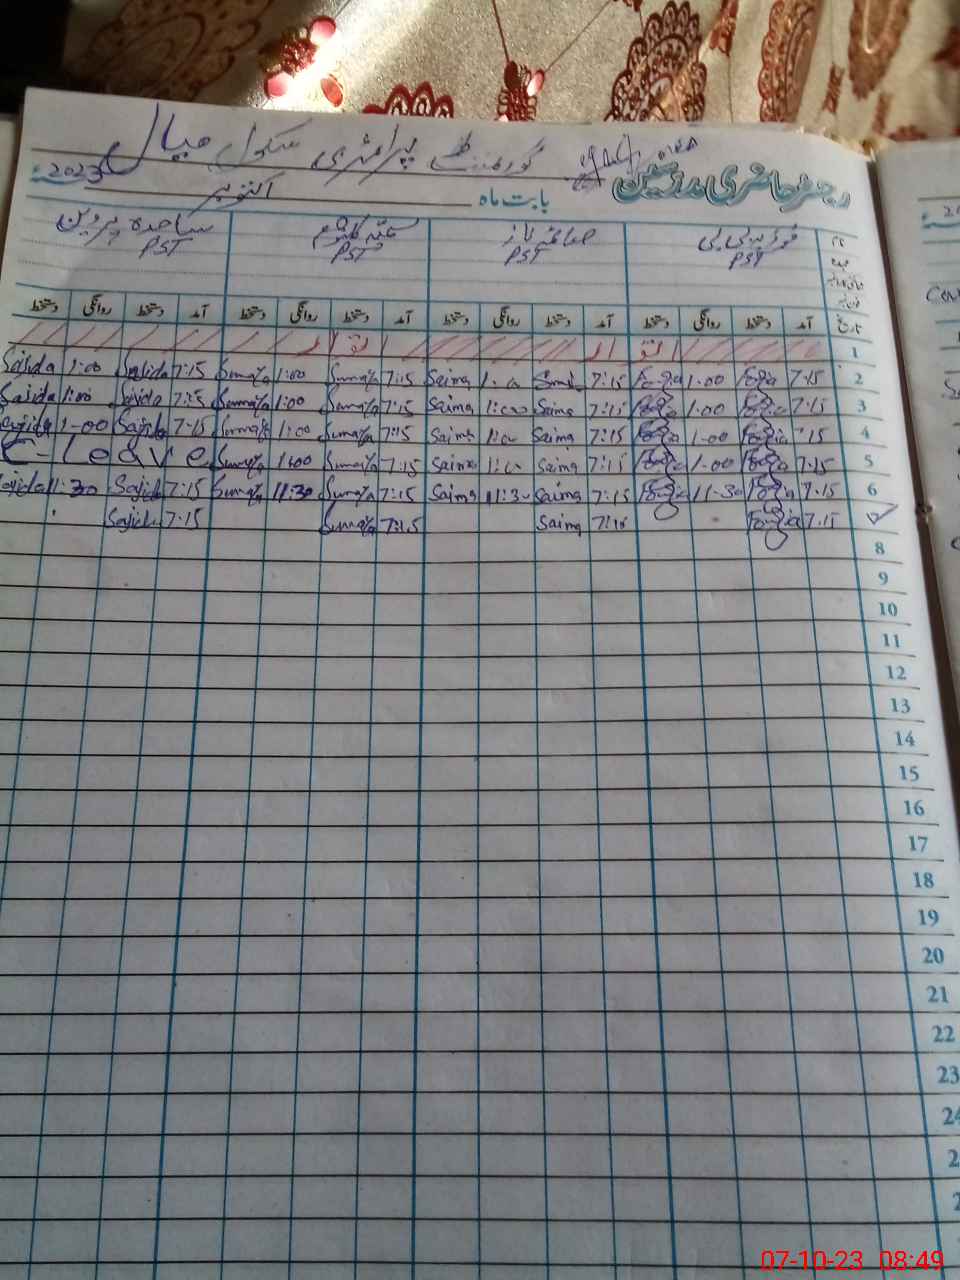 گورنمنٹ پرائمری سکول میال
رجسٹر حاضری مدرسین
بابت ماہ اکتوبر 2023ء
نام فوزیہ بی بی صائمہ ناز ساجدہ پروین
عہدہ PST PST PST PST
تاریخ آمد دستخط روانگی دستخط آمد دستخط روانگی دستخط آمد دستخط روانگی دستخط آمد دستخط روانگی دستخط
1 اتوار اتوار
2 7:15 Fozia 1:00 Fozia 7:15 Saima 1:00 Saima 7:15 Sumaya 1:00 Sumaya 7:15 Sajida 1:00 Sajida
3 7:15 Fozia 1:00 Fozia 7:15 Saima 1:00 Saima 7:15 Sumaya 1:00 Sumaya 7:15 Sajida 1:00 Sajida
4 7:15 Fozia 1:00 Fozia 7:15 Saima 1:00 Saima 7:15 Sumaya 1:00 Sumaya 7:15 Sajida 1-00 Sajida
5 7:15 Fozia 1-00 Fozia 7:15 Saima 1:00 Saima 7:15 Sumaya 1:00 Sumaya C-Leave
6 7:15 Fozia 11-30 Fozia 7:15 Saima 11:30 Saima 7:15 Sumaya 11:30 Sumaya 7:15 Sajida 11:30 Sajida
7 7:15 Fozia 7:15 Saima 7:15 Sumaya 7:15 Sajida
8
9
10
11
12
13
14
15
16
17
18
19
20
21
22
23
24
07-10-23 08:49